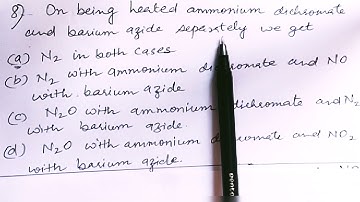 8). On being heated ammonium dichromate
and barium azide seperately we get
(a) N2 in both cases
(b) N2 with ammonium dichromate and NO
with barium azide
(c) N2O with ammonium dichromate and N2
with barium azide.
(d) N2O with ammonium dichromate and NO2
with barium azide.